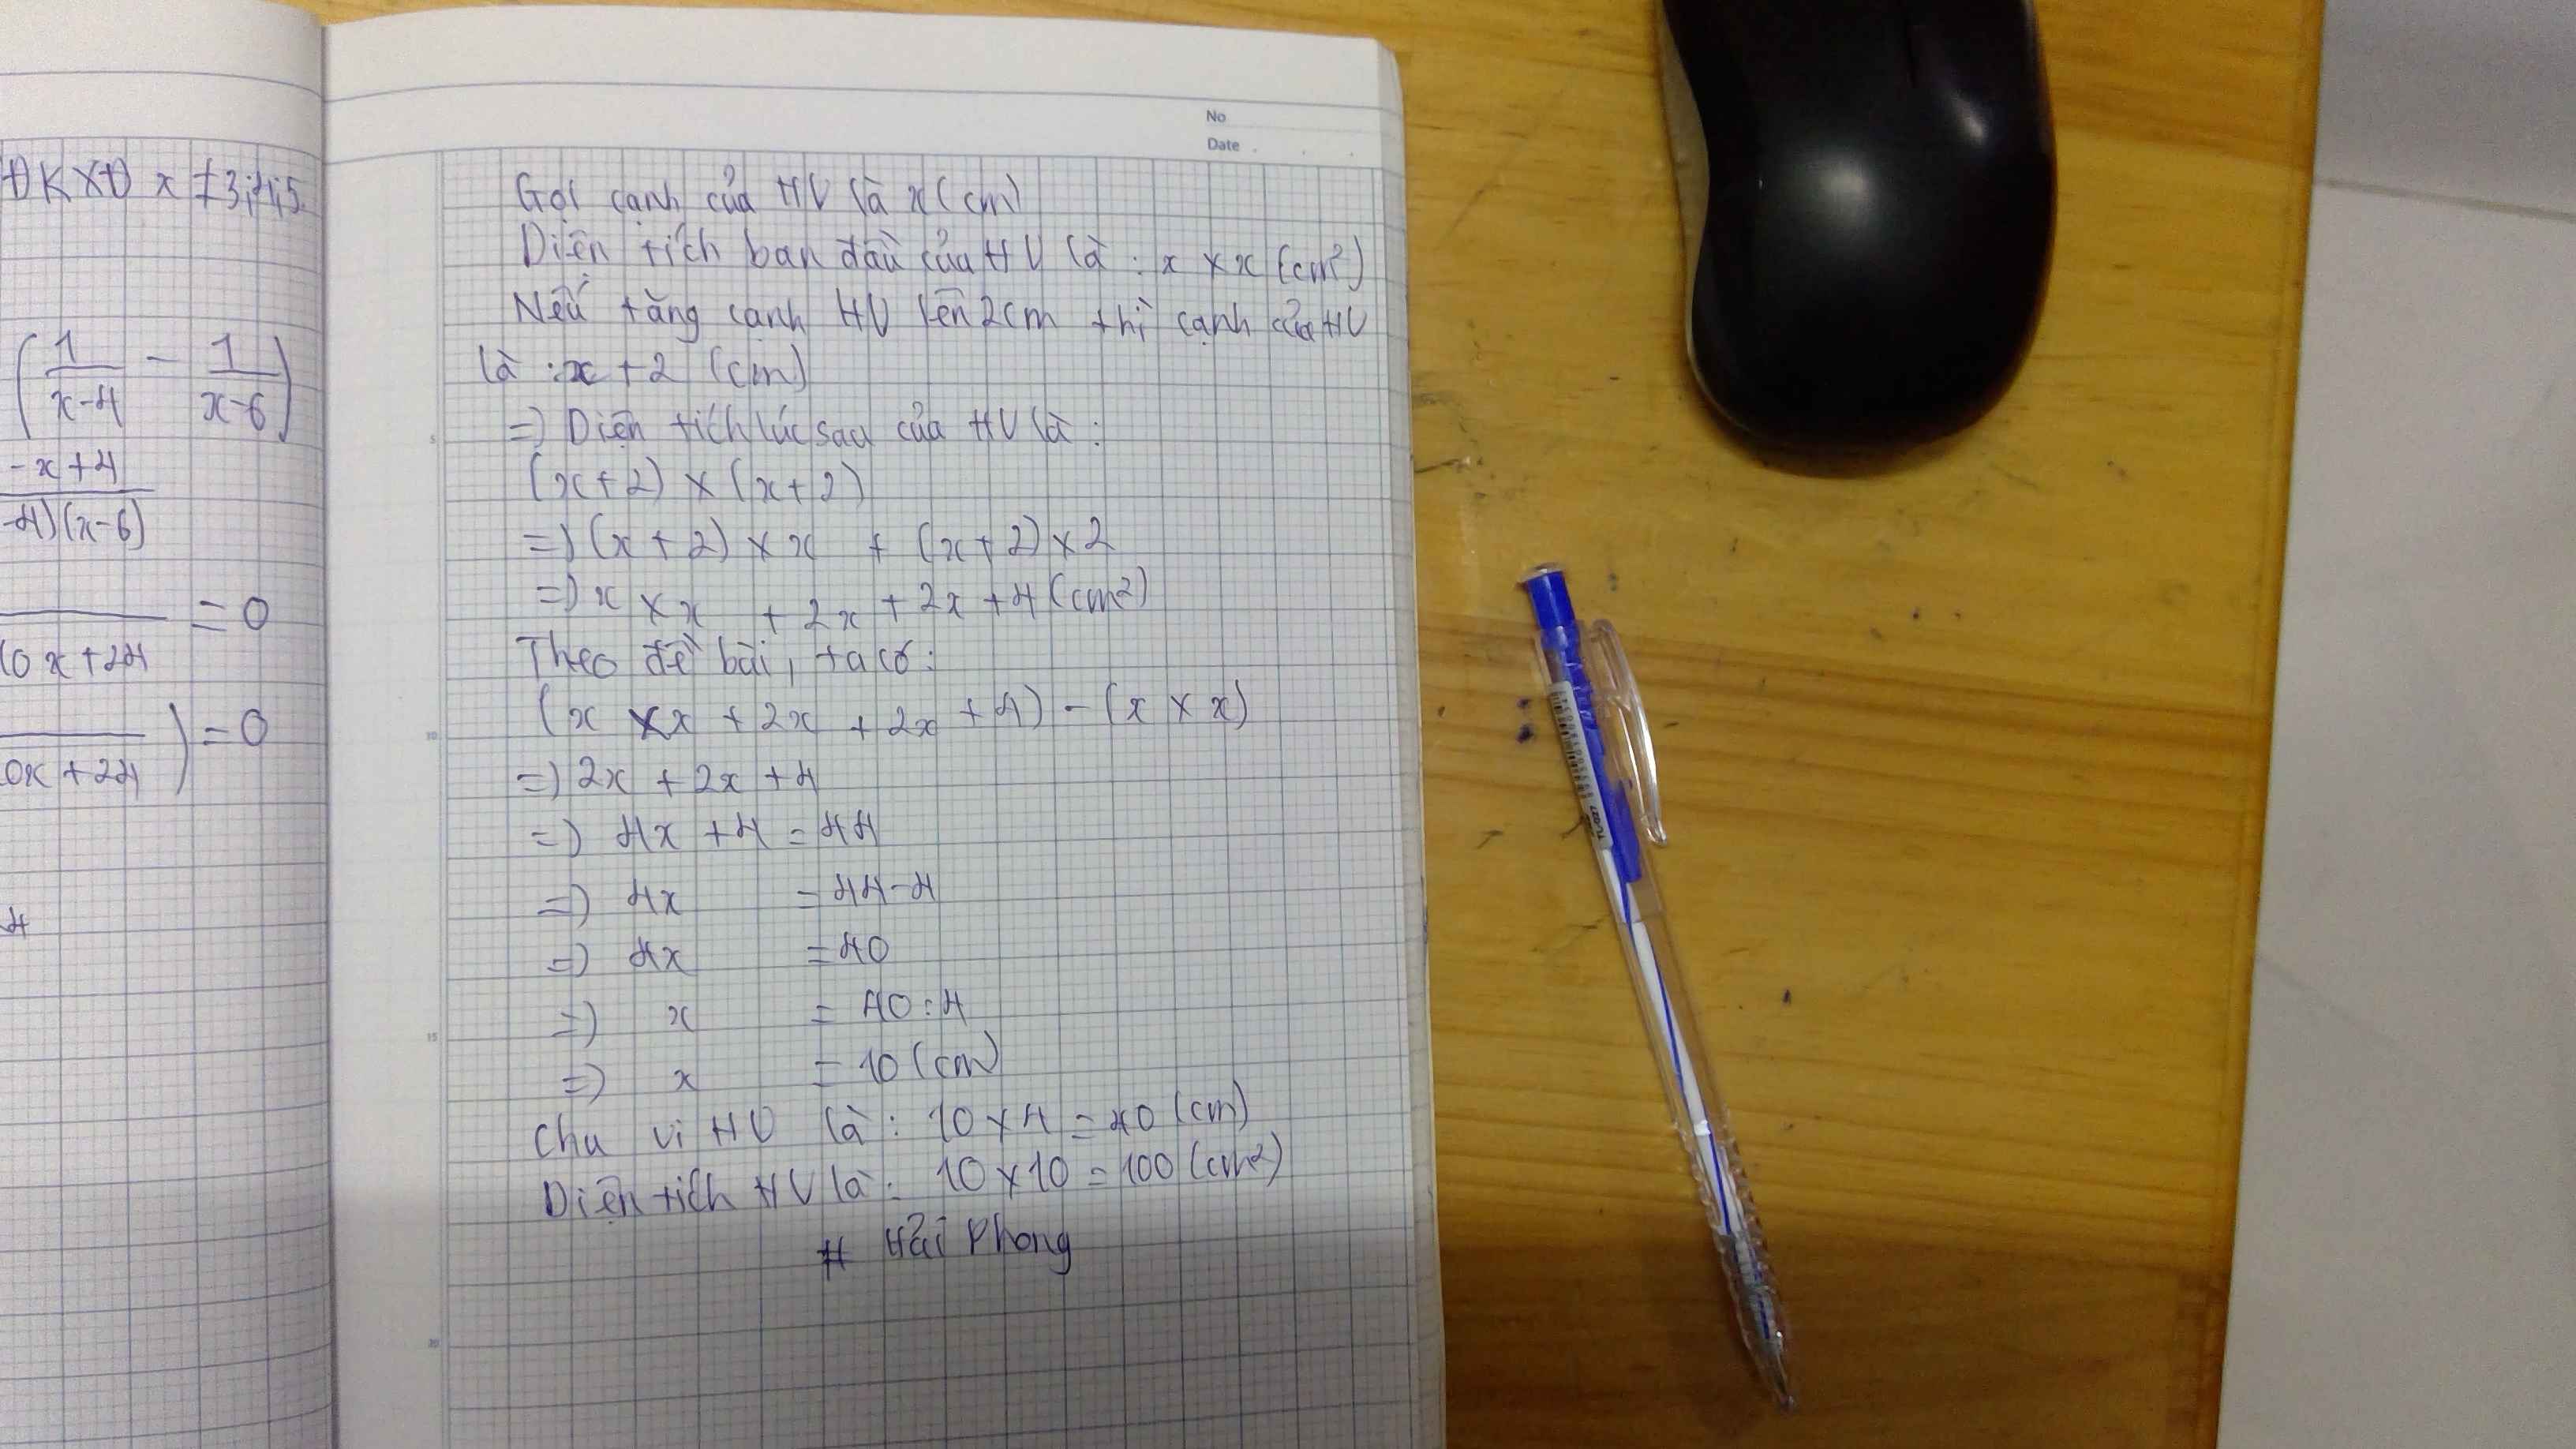 ĐKXĐ x ≠ 3;4;5
(1/(x-4) - 1/(x-6))
-x+4
-4)(x-6)
= 0
10x+24
) = 0
0x+24
4
No
Date
Gọi cạnh của HV là x(cm)
Diện tích ban đầu của HV là : x × x (cm²)
Nếu tăng cạnh HV lên 2cm thì cạnh của HV
là : x + 2 (cm)
=) Diện tích lúc sau của HV là :
5
(x+2) × (x+2)
=) (x + 2) × x + (x+2) × 2
=) x × x + 2x + 2x + 4 (cm²)
Theo đề bài, ta có :
(x × x + 2x + 2x + 4) - (x × x)
10
=) 2x + 2x + 4
=) 4x + 4 = 44
=) 4x = 44-4
=) 4x = 40
=) x = 40:4
15
=) x = 10 (cm)
Chu vi HV là : 10 × 4 = 40 (cm)
Diện tích HV là : 10 × 10 = 100 (cm²)
# Hải Phong
20